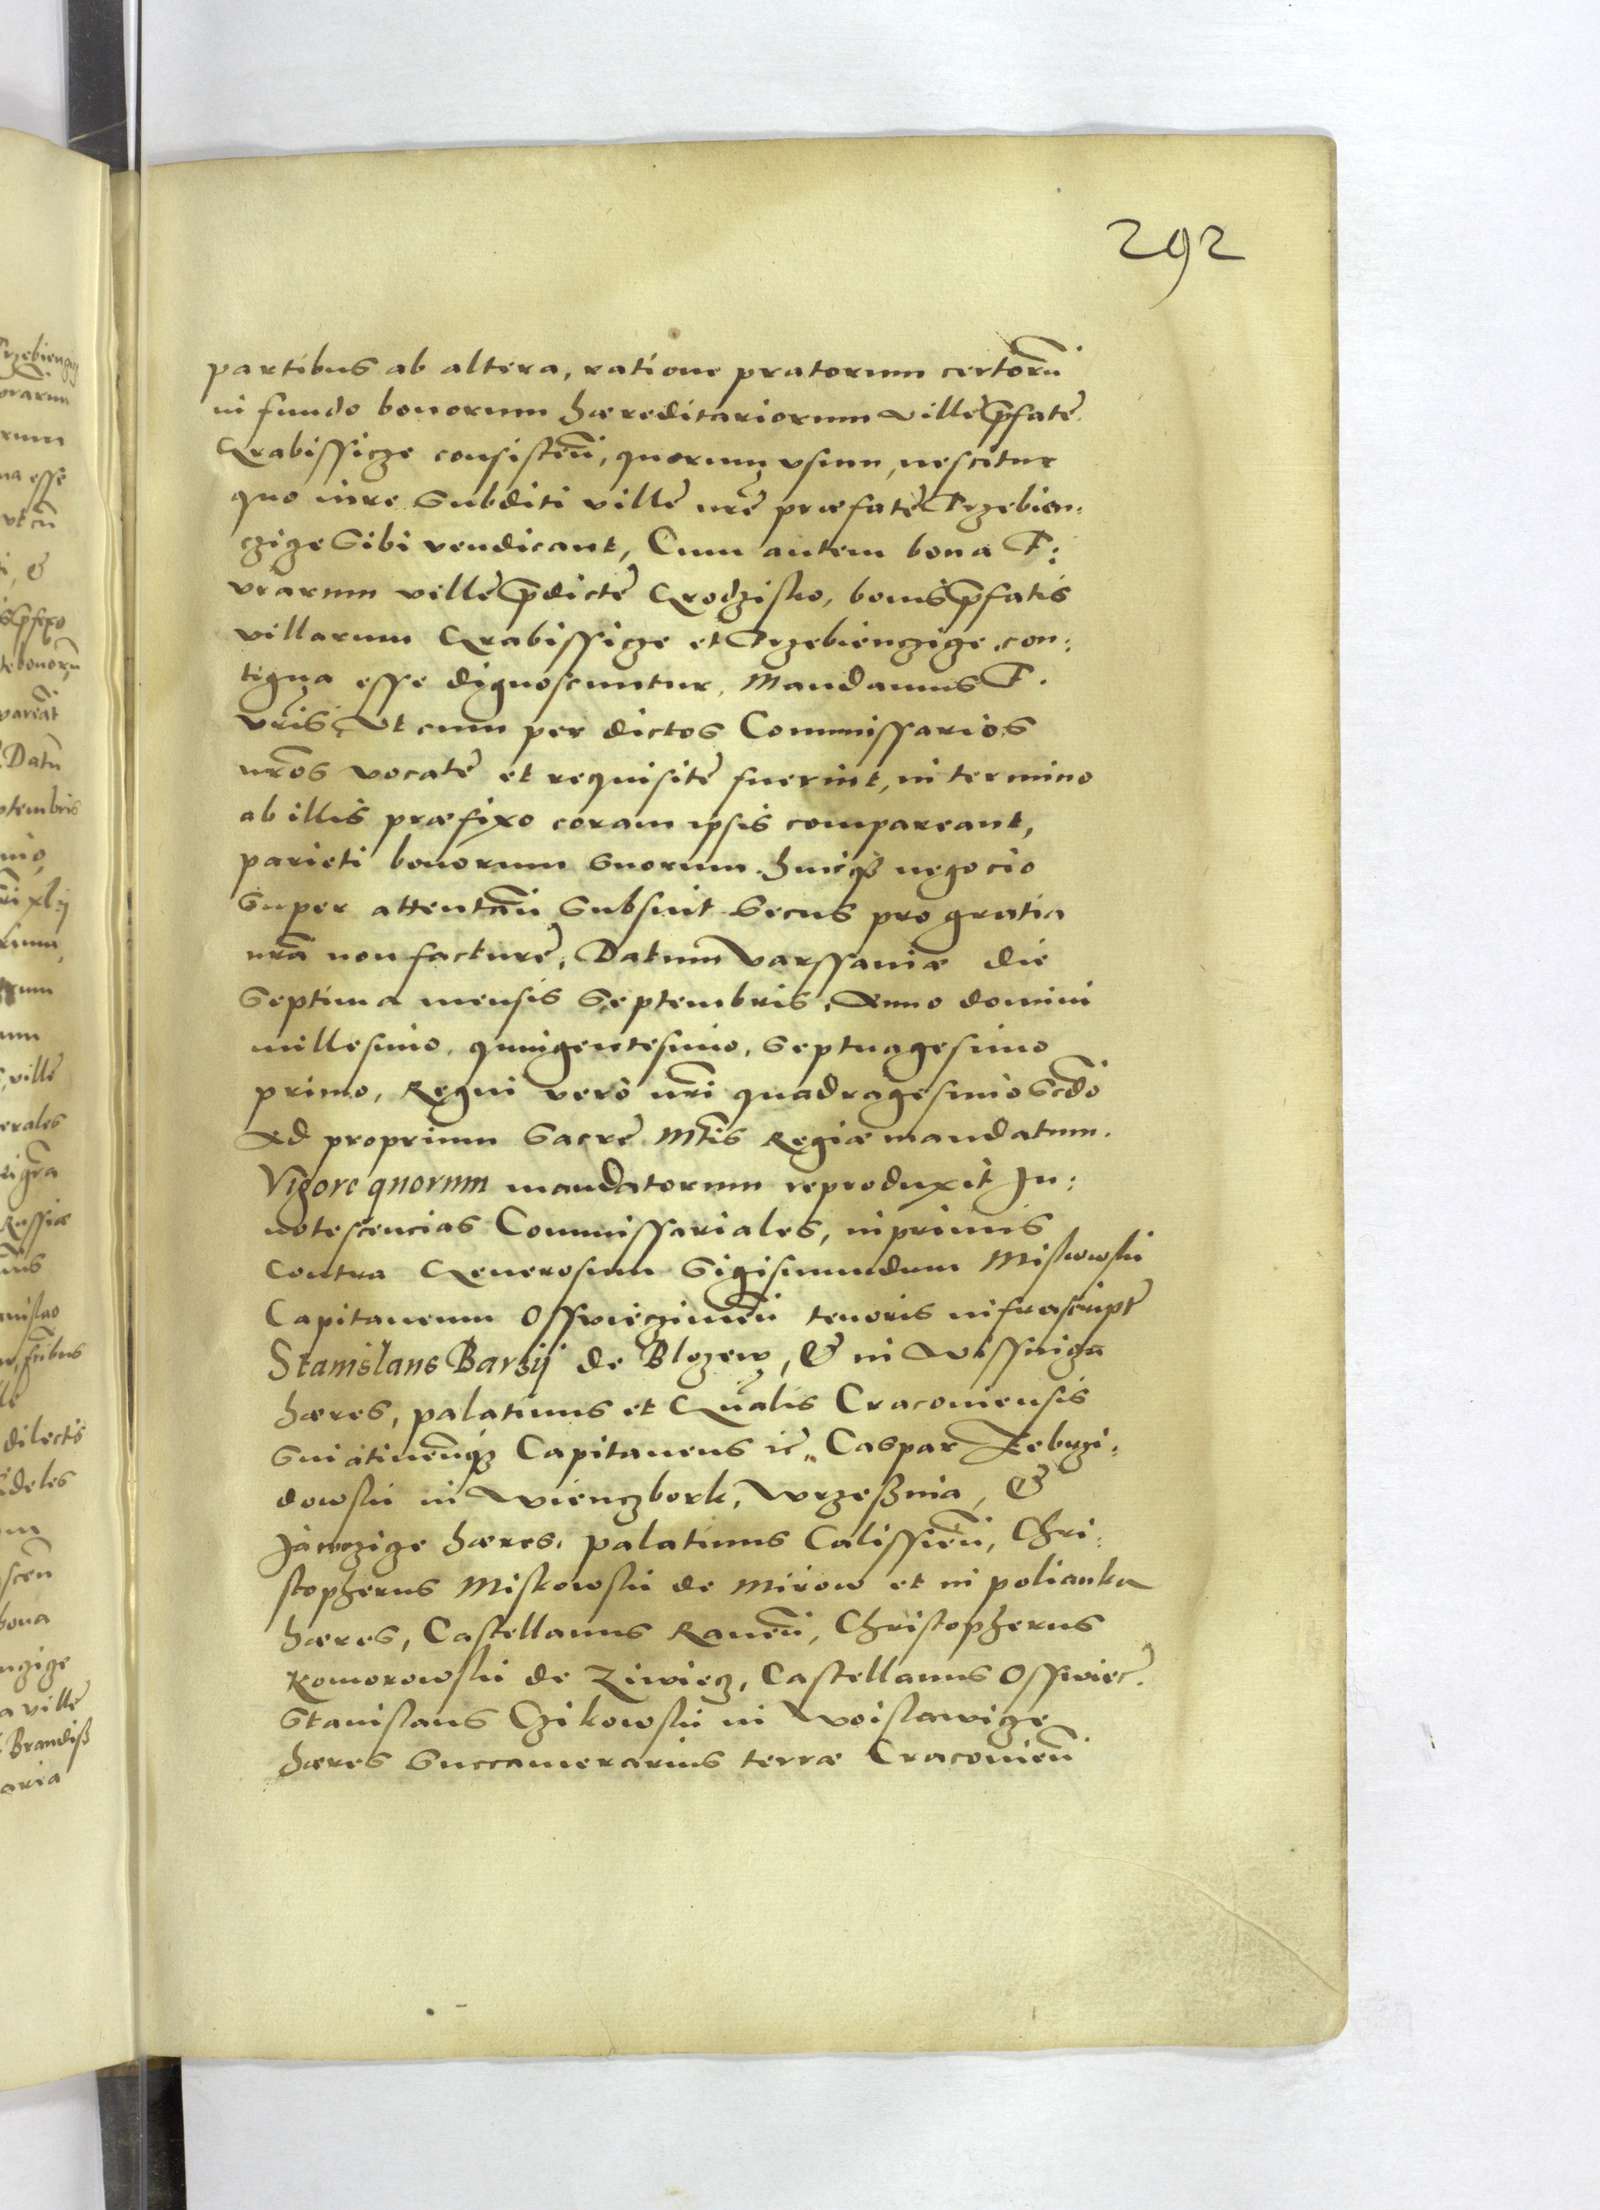 292
partibus ab altera, ratione pratorum certorū
in fundo bonorum hæreditariorum villę p̄fatę
Grabissicze consisteñ, quorum vsum, nescitur
quo iure Subditi villę nr̄ę præfatę Trzebien:
czize Sibi vendicant, Cum autem bona F:
vr̄arum villę p̄dictę Grodzisko, bonis p̄fatis
villarum Grabissicze et Trzebienczize, con:
tigua esse dignoscuntur, Mandamus F.
vr̄is, Vt cum per dictos Commissarios
nr̄os vocatę et requisitę fuerint, in termino
ab illis præfixo coram ipsis compareant,
parieti bonorum Suorum. huicq̨ negocio
Super attentañ Subsint Secus pro gratia
nr̄a non facturę, Datum Varssauiæ die
Septima mensis Septembris, Anno domini
millesimo, quingentesimo, Septuagesimo
primo, Regni vero nr̄i quadragesimo Scd̄o
Ad proprium Sacrę Mt̄is Regiæ mandatum.
Vigore quorum mandatorum reproduxit In:
notescencias Commissariales, inprimis
Contra Generosum Sigismundum Miskowski
Capitaneum Osswieczimeñ tenoris infrascript̄
Stanislaus Barzij de Blozew, & in Wissniga
hæres, palatinus et Gn̄alis Cracouiensis
Sniatineñq̨ Capitaneus ic̄, Caspar Zebrzi:
dowski in Wienczbork, Wrzeßnia, &
Jawczize hæres, palatinus Calissieñ, Chri:
stopherus Miskowski de Mirow et in polianka
hæres, Castellanus Raueñ, Christopherus
Komorowski de Ziwiecz, Castellanus Osswiec̄.
Stanislaus Czikowski in Woislawicze
hæres Succamerarius terræ Cracouieñ